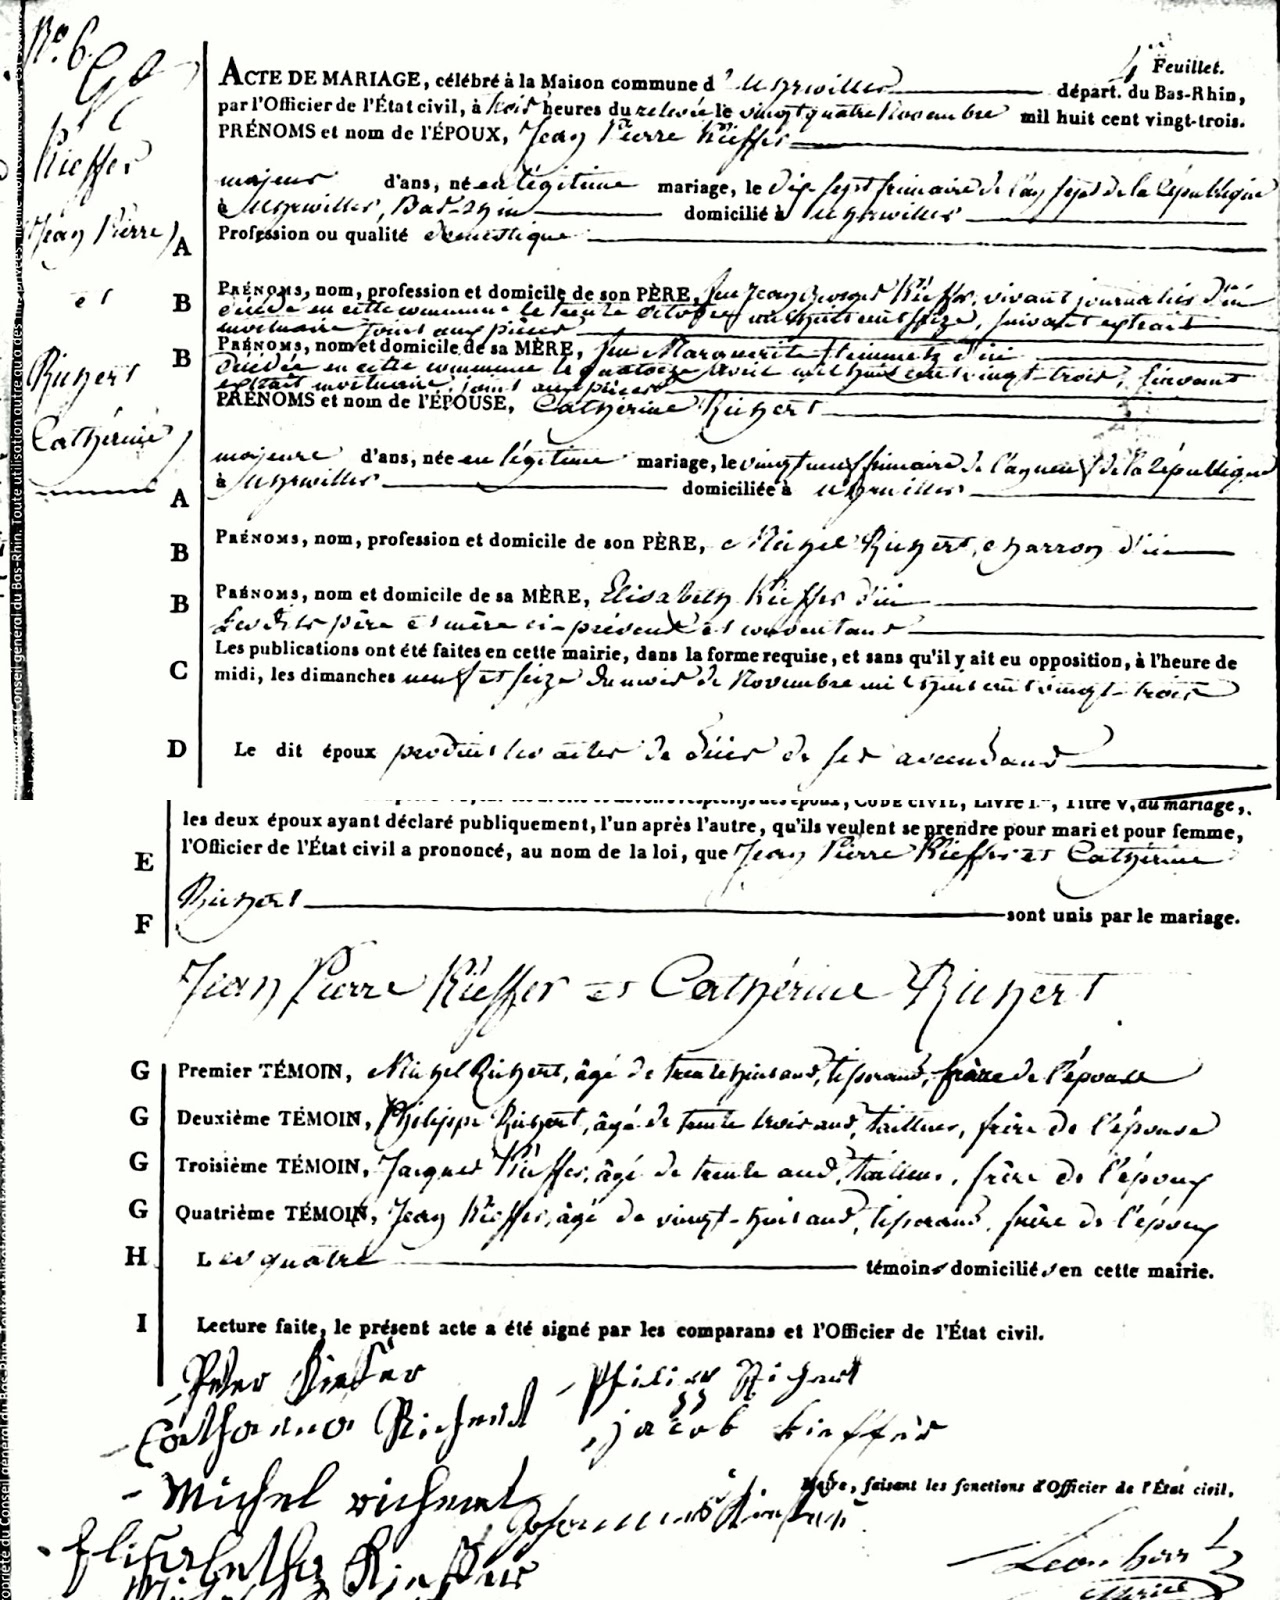 N.º 6.
4.e Feuillet.
ACTE DE MARIAGE, célébré à la Maison commune d'Uhrwiller départ. du Bas-Rhin,
par l'Officier de l'État civil, à trois heures du relevée le vingt quatre Novembre mil huit cent vingt-trois.
PRÉNOMS et nom de l'ÉPOUX, Jean Pierre Kieffer
Kieffer
Jean Pierre
et
Richert
Cathérine
majeur d'ans, né en légitime mariage, le dix sept frimaire de l'an sept de la République
à Uhrwiller, Bas-Rhin domicilié à Uhrwiller
A Profession ou qualité domestique
B PRÉNOMS, nom, profession et domicile de son PÈRE, feu Jean Georges Kieffer, vivant journalier d'ici
décédé en cette commune le trente Octobre mil huit cent seize, suivant extrait
mortuaire joint aux pièces
B PRÉNOMS, nom et domicile de sa MÈRE, feu Marguerite Stemmetz d'ici
décédée en cette commune le quatorze avril mil huit cent vingt-trois, suivant
extrait mortuaire, joint aux pièces
PRÉNOMS et nom de l'ÉPOUSE, Cathérine Richert
majeure d'ans, née en légitime mariage, le vingt neuf frimaire de l'an neuf de la République
à Uhrwiller domiciliée à Uhrwiller
A
B PRÉNOMS, nom, profession et domicile de son PÈRE, Michel Richert, charron d'ici
B PRÉNOMS, nom et domicile de sa MÈRE, Elisabeth Kieffer d'ici
Les dits père et mère ci-présents et consentans
Les publications ont été faites en cette mairie, dans la forme requise, et sans qu'il y ait eu opposition, à l'heure de
C midi, les dimanches neuf et seize du mois de Novembre mil huit cent vingt-trois
D Le dit époux produit les actes de décès de ses ascendans
CODE CIVIL, Livre I.er, Titre V, du mariage,
les deux époux ayant déclaré publiquement, l'un après l'autre, qu'ils veulent se prendre pour mari et pour femme,
E l'Officier de l'État civil a prononcé, au nom de la loi, que Jean Pierre Kieffer et Cathérine
Richert
F sont unis par le mariage.
Jean Pierre Kieffer et Cathérine Richert
G Premier TÉMOIN, Michel Richert, âgé de trente huit ans, tisserand, frère de l'épouse
G Deuxième TÉMOIN, Philippe Richert, âgé de trente trois ans, tailleur, frère de l'épouse
G Troisième TÉMOIN, Jacques Kieffer, âgé de trente ans, tailleur, frère de l'époux
G Quatrième TÉMOIN, Jean Kieffer, âgé de vingt-huit ans, tisserand, frère de l'époux
H Les quatre témoins domiciliés en cette mairie.
I Lecture faite, le présent acte a été signé par les comparans et l'Officier de l'État civil.
Peter Kiefer
Philipp Richert
Catharina Richert
jacob kieffer
Michel richert
Maire, faisant les fonctions d'Officier de l'État civil.
Johannes
Elisabetha Kieffer
Leonhart
Michel
Maire